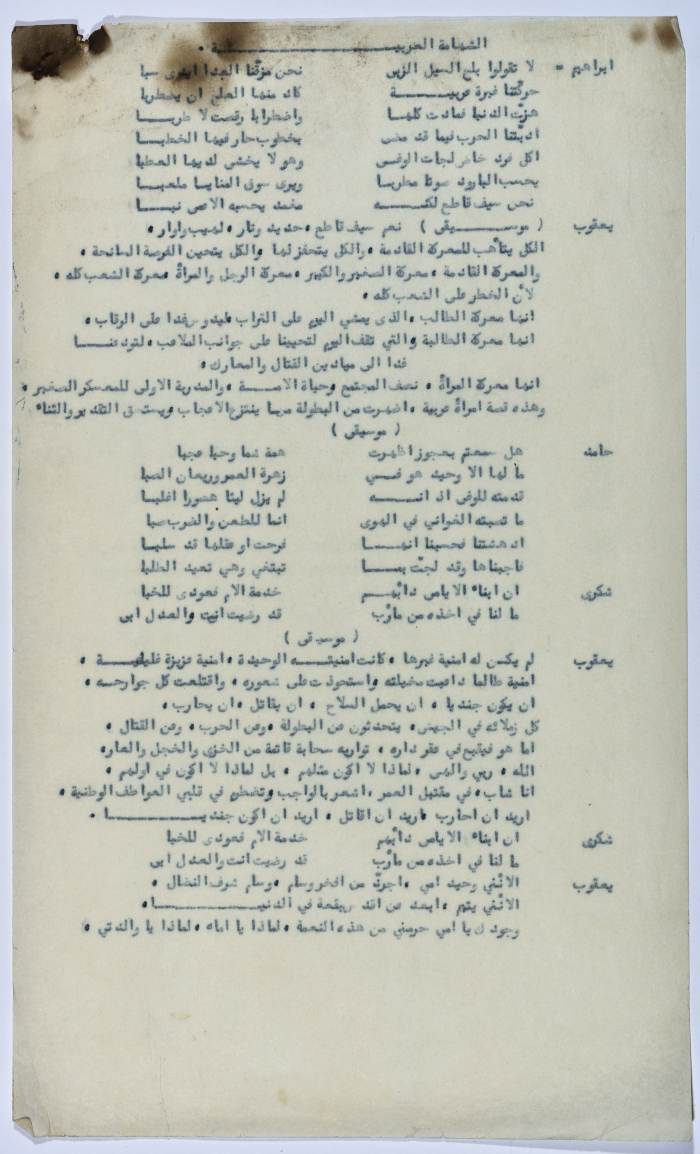 الشهامة العربيـــــــــة .
ابراهيم = لا تقولوا بلغ السيل الزبى نحن مزقنا العدا ايدى سبا
حركتنا غيرة عربيـــــة كاد منها العلج ان يضطربا
هزت الدنيا فمادت كلها واضطرابا رقصت لا طربـــا
ادبتنا الحرب فيما قد مضى بخطوب حار فيها الخطبـــا
اكل فرد خاض لجات الوغى وهو لا يخشى لديها العطبا
يحسب البارود صوتا مطربا ويرى سوق المنايـــا ملعبـــا
نحن سيف قاطع لكنـــه مغمد يحسبه الاعمى نبـــا
يعقوب ( موســـيقى ) نعم سيف قاطع ، حديد ونار ، لهيب واوار ،
الكل يتأهب للمعركة القادمة ، والكل يتحفز لها والكل يتحين الفرصة السانحة ،
والمعركة القادمة ، معركة الصغير والكبير ، معركة الرجل والمرأة ، معركة الشعب كله ،
لأن الخطر على الشعب كله ،
انها معركة الطالب ، الذى يمشي اليوم على التراب ليدوس غدا على الرقاب ،
انها معركة الطالبة والتي تقف اليوم لتحيينا على جوانب الملاعب ، لتودعنـــا
غدا الى ميادين القتال والمعارك ،
انها معركة المرأة ، نصف المجتمع وحياة الامـــة ، والمدربة الاولى للمعسكر الصغير ،
وهذه قصة امرأة عربية ، اظهرت من البطولة مما ينتزع الاعجاب ويستحق التقدير والثناء
( موسيقى )
حامد هل سمعتم بعجوز اظهرت همة شما وحبا عجبا
ما لها الا وحيد هو فـــي زهرة العمر وريعان الصبا
قدمته للوغى اذ انـــه لم يزل ليثا هصورا اغلبـــا
ما تصبته الغواني في الهوى انما للطعن والضرب صبا
ادهشتنا فحسبنا انهـــا فرحت او عقلها قد سلبـــا
فاجبناها وقد لجت بمـــا تبتغي وهي تعيد الطلبا
شكرى ان ابناء الايامى دأبهـــم خدمة الام فعودى للخبا
ما لنا في اخذه من مأرب قد رضيت انت والعدل ابى
( موسيقى )
يعقوب لم يكن له امنية غيرها ، كانت امنيتـــه الوحيدة ، امنية عزيزة غاليـــة ،
امنية طالما داعبت مخيلته واستحوذت على شعوره ، واقتلعت كل جوارحـــه ،
ان يكون جنديا ، ان يحمل السلاح ، ان يقاتل ، ان يحارب ،
كل زملائه في الجيش ، يتحدثون عن البطولة ، وعن الحرب ، وعن القتال ،
اما هو فيقبع في عقر داره ، تواريه سحابة قاتمة من الخزى والخجل والعار ،
الله ، ربي والهى ، لماذا لا اكون مثلهم ، بل لماذا لا اكون في اولهم ،
انا شاب ، في مقتبل العمر ، اشعر بالواجب وتضطرم في قلبي العواطف الوطنية ،
اريد ان احارب ، اريد ان اقاتل ، اريد ان اكون جنديـــــا .
شكرى ان ابناء الايامى دأبهم خدمة الام فعودى للخبا
ما لنا في اخذه من مأرب قد رضيت انت والعدل ابى
يعقوب الانني وحيد امي ، اجرد من افخر وسام ، وسام شرف النضال ،
الانني يتيم ، ابعد عن اقدس بقعة في الدنيـــــا ،
وجودك يا امي حرمني من هذه النعمة ، لماذا يا اماه ، لماذا يا والدتي ،